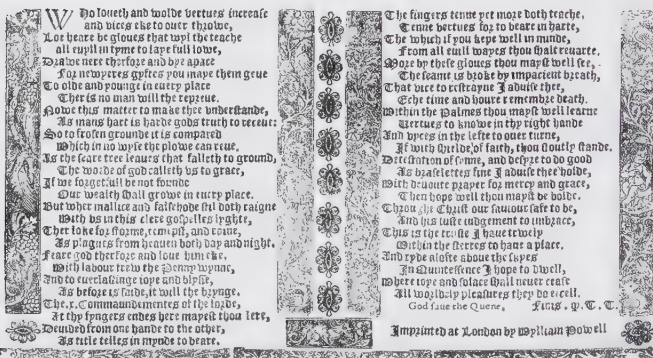 Who loueth and wolde vertues increase
and vices eke to ouer throwe,
Loe heare be gloues that wyl the teache
all euyll in tyme to laye full lowe,
Drawe nere therfore and bye apace
For newyeres gyftes you maye them geue
To olde and younge in euery place
Ther is no man will the repreue.
Nowe this matter to make thee vnderstande,
As mans hart is harde gods truth to receue:
So to frosen grounde it is compared
Which in no wyse the plowe can reue.
As the seare tree leaues that falleth to ground,
The worde of god calleth vs to grace,
If we forgetfull be not founde
Our wealth shall growe in euery place.
But wher mallice and falsehode stil doth raigne
With vs in this clere gospelles lyghte,
Ther loke for storme, tempest, and raine,
As plagues from heauen both day and night.
Feare god therfore and loue him eke.
With labour trew the Penny wynne,
And to euerlastinge ioye and blysse,
As before is saide, it will the brynge.
The .x. Commaundementes of the lorde,
At thy fyngers endes here mayest thou lere,
Deuided from one hande to the other,
As title telles in mynde to beare.
The fingers tenne yet more doth teache,
Tenne vertues for to beare in harte,
The which if you kepe well in minde,
From all euill wayes thou shalt reuarte.
More by these gloues thou mayst well see,
The seame is broke by impacient breath,
That vice to restrayne I aduise thee,
Eche time and houre remembre death.
Within the Palmes thou mayst well learne
Uertues to knowe in thy right hande
And vyces in the left to ouer turne,
If with shielde, of faith, thou stoutly stande.
Detestation of synne, and desyre to do good
As braselettes fine I aduise thee holde,
With deuoute prayer for mercy and grace,
Then hope well thou mayst be bolde.
Through Christ our sauiour safe to be,
And his iuste iudgement to imbrace,
This is the truste I haue trewly
Within the sterres to haue a place.
And ryde alofte aboue the skyes
In Quintessence I hope to dwell,
Where ioye and solace shall neuer cease
All worldly pleasures they do excell.
God saue the Quene, Finis. q. T. C.
Imprinted at London by Wylliam Powell